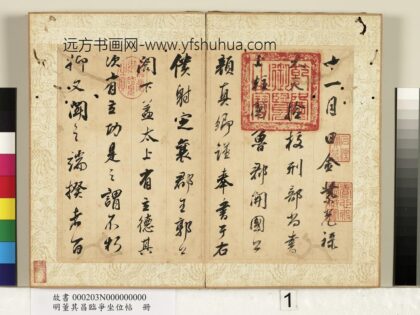 远方书画网-www.yfshuhua.com
十一月日金紫光祿
大夫檢校刑部尚書
上柱國魯郡開國公
顏真卿謹奉書于右
僕射定襄郡王郭公
閣下蓋太上有立德其
次有立功是之謂不朽
抑又聞之端揆者百
故書 000203N000000000
明董其昌臨爭坐位帖 冊
1